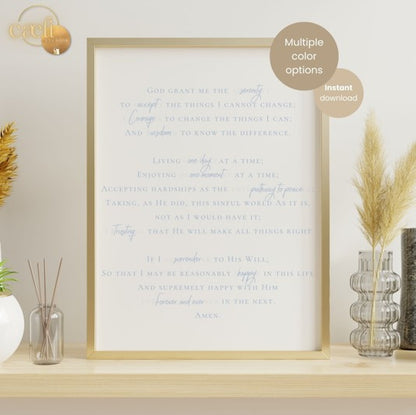 cæli
Multiple
color
options
Instant
download
God grant me the serenity
to accept the things I cannot change;
Courage to change the things I can;
And wisdom to know the difference.
Living one day at a time;
Enjoying one moment at a time;
Accepting hardships as the pathway to peace
Taking, as He did, this sinful world as it is,
not as I would have it;
Trusting that He will make all things right
If I surrender to His Will;
So that I may be reasonably happy in this life
And supremely happy with Him
Forever and ever in the next.
Amen.